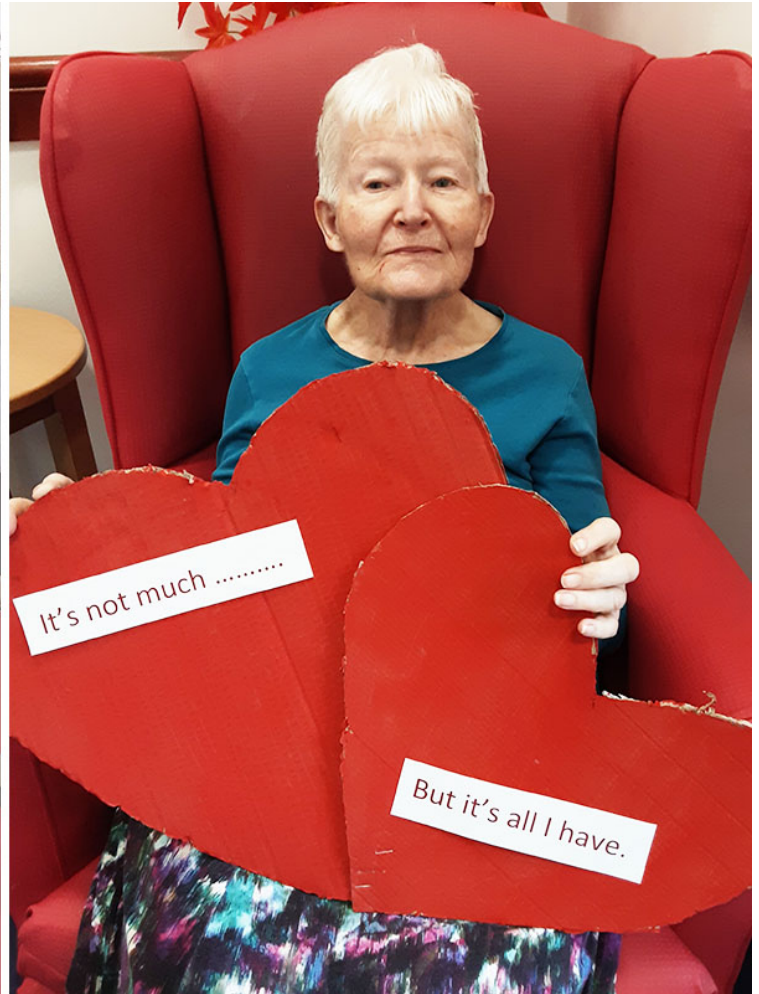 It's not much ..........
But it's all I have.